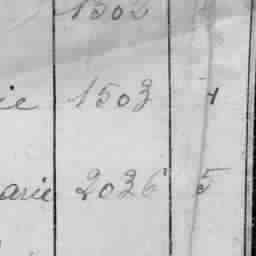 1502
ie 1503 4
arie 2036 5